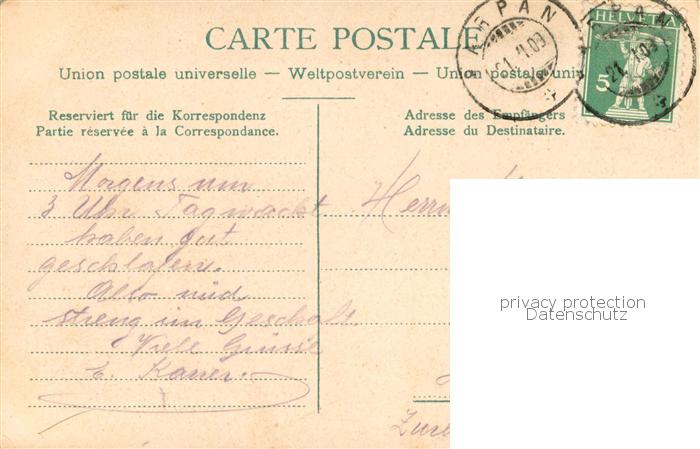 CARTE POSTALE
Union postale universelle — Weltpostverein — Union postale uni
Reserviert für die Korrespondenz
Partie réservée à la Correspondance.
Adresse des Empfängers
Adresse du Destinataire.
PARPAN
21.
HELVETIA
5
Morgens um
3 Uhr Tagwacht
haben gut
geschlafen.
Also nid
streng im Geschäft.
Viele Grüsse
E.
Herrn
privacy protection
Datenschutz